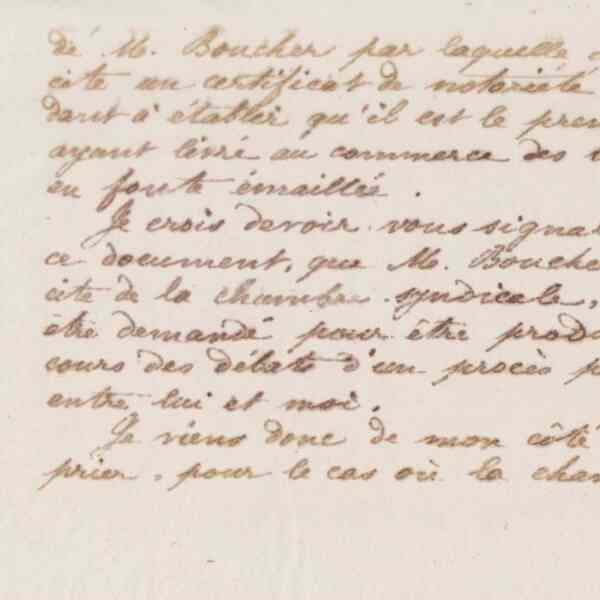 dé M. Boucher par laquelle
cite un certificat de notoriété
dant à établir qu'il est le prem
ayant livré au commerce des
en fonte émaillée.
Je crois devoir vous signa
ce document, que M. Bouche
cite de la chambre syndicale,
être demandé pour être prod
cours des débats d'un procès p
entre lui et moi.
Je viens donc de mon côté
prier, pour le cas où la cham